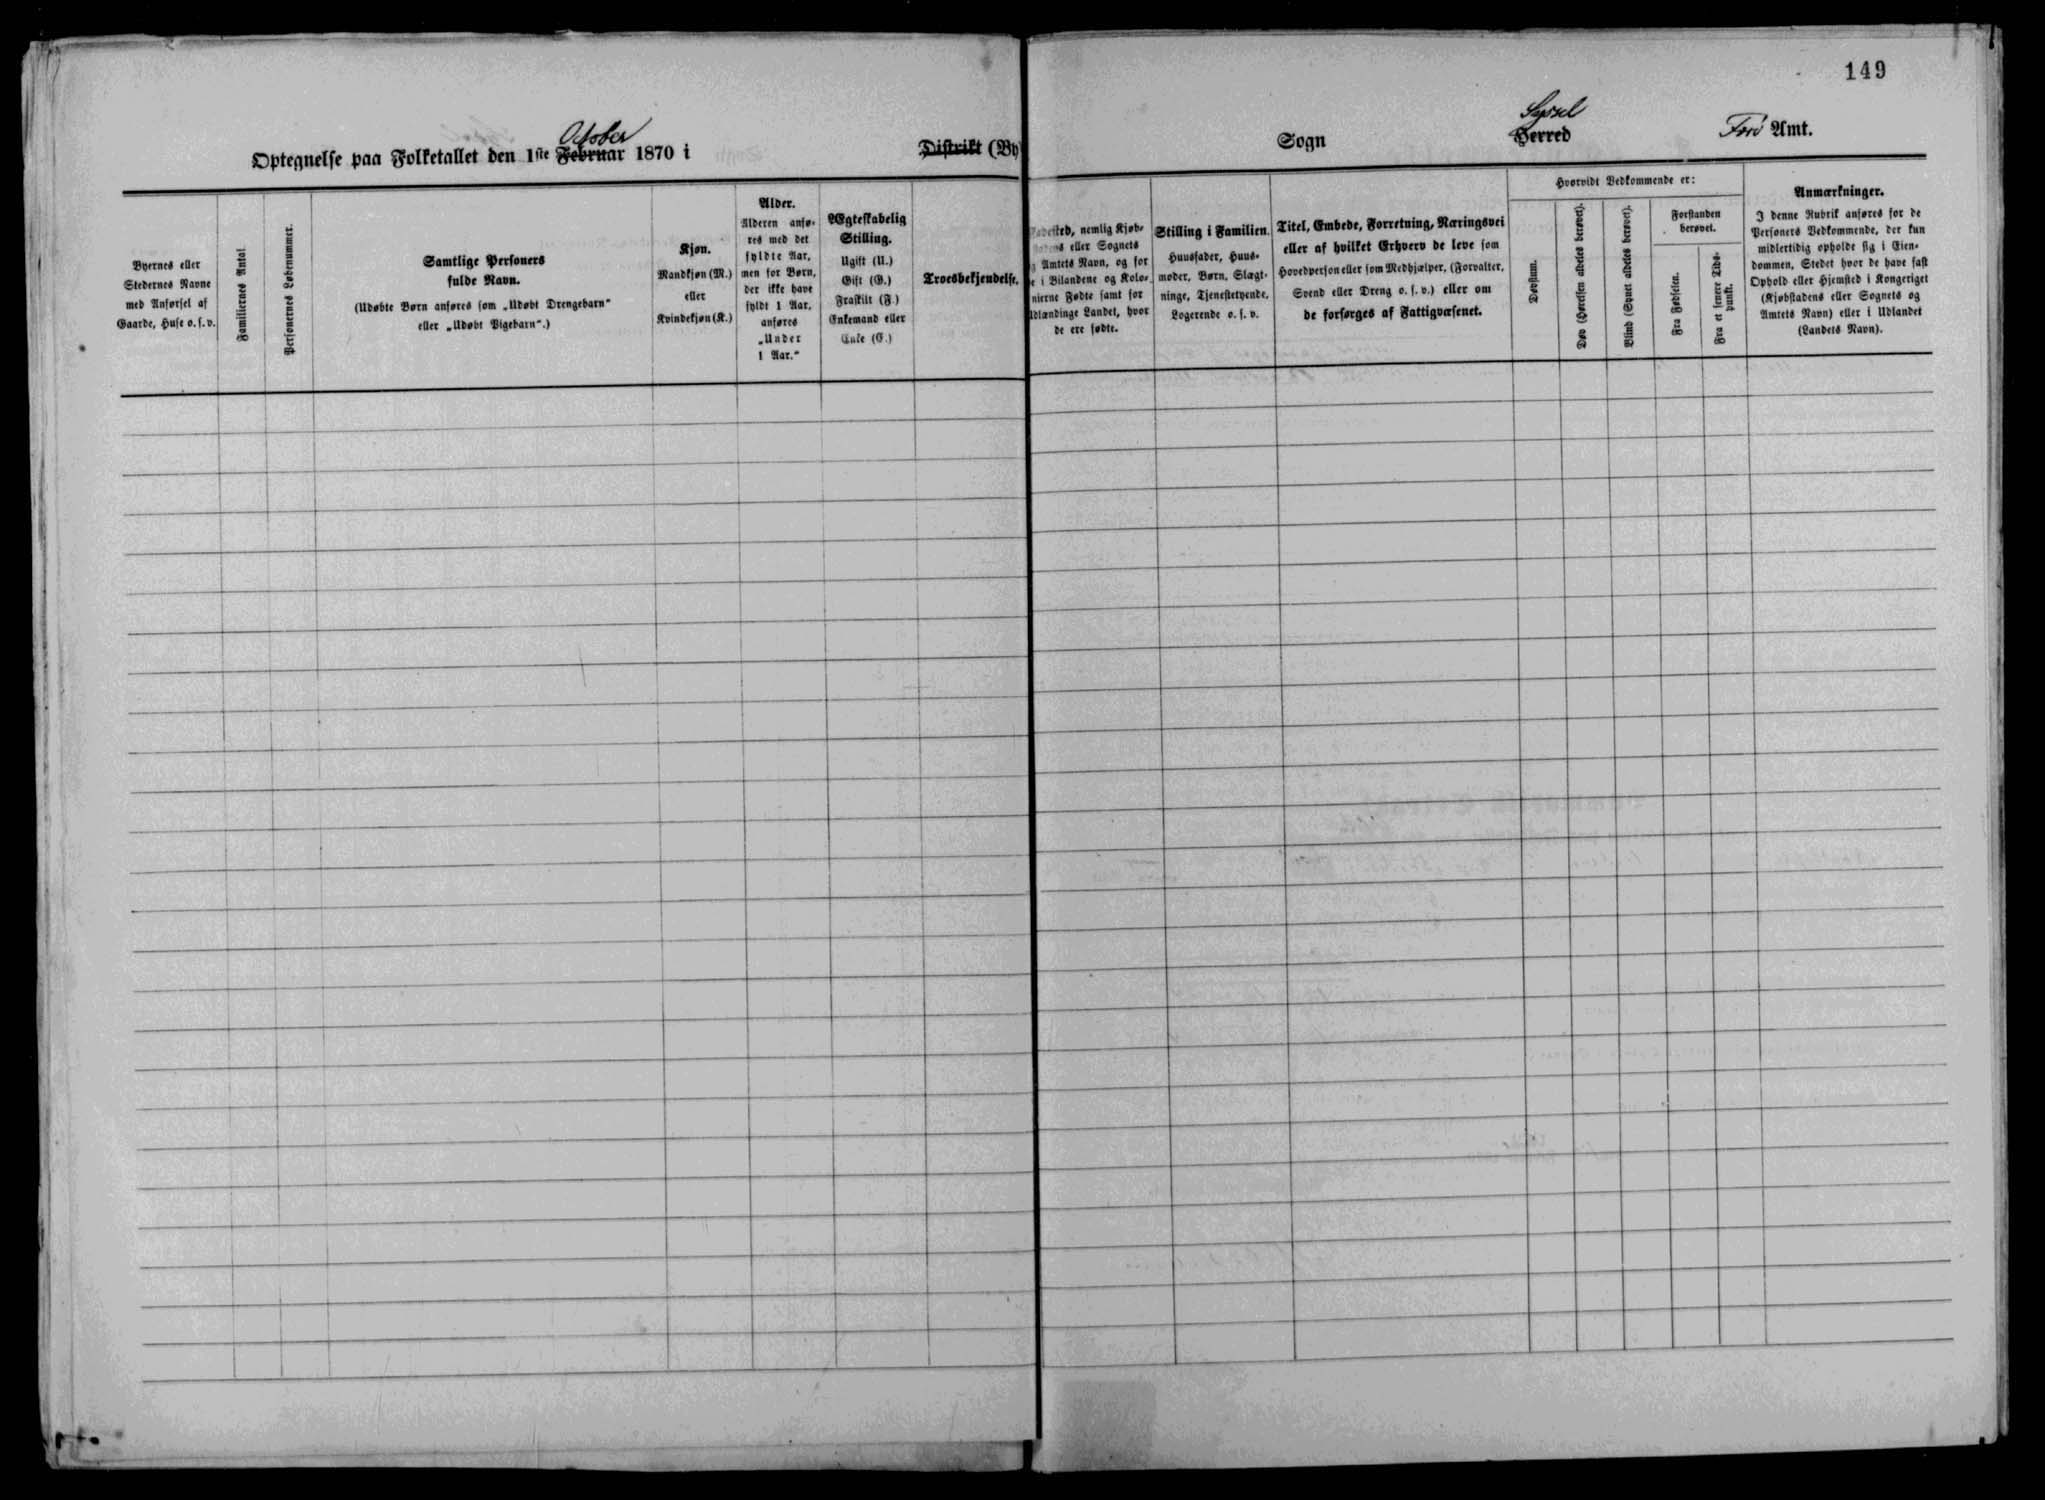 149
Optegnelse paa Folketallet den 1ste Februar 1870 i
October
Distrikt (By
Sogn
Syssel
Herred
Færö Amt.
Byernes eller
Stedernes Navne
med Anførsel af
Gaarde, Huse o. s. v.
Familiernes Antal
Personernes Løbenummer.
Samtlige Personers
fulde Navn.
(Udøbte Børn anføres som „Udøbt Drengebarn“
eller „Udøbt Pigebarn“.)
Kjøn.
Mandkjøn (M.)
eller
Kvindekjøn (K.)
Alder.
Alderen anfø-
res med det
fyldte Aar,
men for Børn,
der ikke have
fyldt 1 Aar,
anføres
„Under
1 Aar.“
Ægteskabelig
Stilling.
Ugift (U.)
Gift (G.)
Fraskilt (F.)
Enkemand eller
Enke (E.)
Troesbekjendelse.
Fødested, nemlig Kjøb-
stadens eller Sognets
og Amtets Navn, og for
de i Bilandene og Kolo-
nierne Fødte samt for
Udlændinge Landet, hvor
de ere fødte.
Stilling i Familien.
Huusfader, Huus-
moder, Børn, Slægt-
ninge, Tjenestetyende,
Logerende o. s. v.
Titel, Embede, Forretning, Næringsvei
eller af hvilket Erhverv de leve som
Hovedperson eller som Medhjælper, (Forvalter,
Svend eller Dreng o. s. v.) eller om
de forsørges af Fattigvæsenet.
Hvorvidt Vedkommende er:
Døvstum.
Døv (Hørelsen aldeles berøvet).
Blind (Synet aldeles berøvet).
Forstanden
berøvet.
Fra Fødselen.
Fra et senere Tids-
punkt.
Anmærkninger.
I denne Rubrik anføres for de
Personers Vedkommende, der kun
midlertidig opholde sig i Eien-
dommen, Stedet hvor de have fast
Ophold eller Hjemsted i Kongeriget
(Kjøbstadens eller Sognets og
Amtets Navn) eller i Udlandet
(Landets Navn).